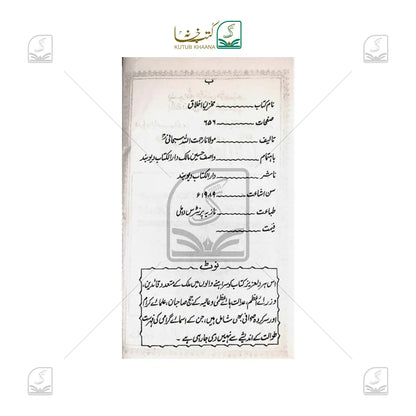 کتب خانہ
KUTUB KHAANA
ب
نام کتاب ــــــــ مخزنِ اخلاق
صفحات ــــــــ ۶۵۶
تالیف ــــــــ مولانا رحمت اللہ سبحانی
باہتمام ــــــــ واصف حسین مالک دارالکتاب دیوبند
ناشر ــــــــ دارالکتاب دیوبند
سن اشاعت ــــــــ ۱۹۸۹ء
طباعت ــــــــ نازیہ پرنٹرس دہلی
قیمت ــــــــ
نوٹ
اس ہر دلعزیز کتاب کو سراہنے والوں میں ملک کے متعدد قائدین،
وزرائے اعظم، عدالت ہائے عظمیٰ و عالیہ کے جج صاحبان، علمائے کرام
اور سرکردہ صحافی بھی شامل ہیں، جن کے اسمائے گرامی کی فہرست
طوالت کے اندیشے سے نہیں دی جا رہی ہے۔